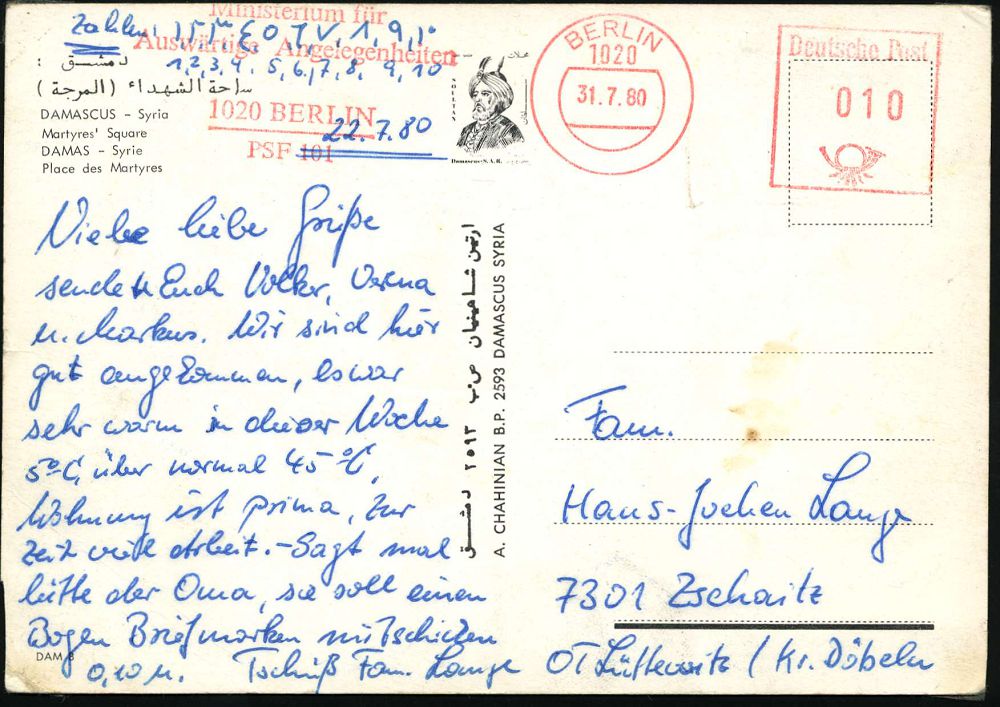 Ministerium für
Auswärtige Angelegenheiten
1020 BERLIN
PSF 101
Zahlen:
1, 2, 3, 4, 5, 6, 7, 8, 9, 10
22.7.80
دمشق :
ساحة الشهداء (المرجة)
DAMASCUS – Syria
Martyres' Square
DAMAS – Syrie
Place des Martyres
Damascus-S.A.R.
BERLIN
1020
31.7.80
Deutsche Post
010
Viele liebe Grüße
senden Euch Volker, Verena
u. Markus. Wir sind hier
gut angekommen, es war
sehr warm in dieser Woche
5°C über normal 45°C,
Wohnung ist prima, zur
Zeit viel Arbeit. – Sagt mal
bitte der Oma, sie soll einen
Bogen Briefmarken mitschicken
0,10 M. Tschüß Fam. Lange
DAM 8
ارتين شاهينيان ص.ب ٢٥٩٣ دمشق
A. CHAHINIAN B.P. 2593 DAMASCUS SYRIA
Fam.
Hans-Jochen Lange
7301 Zschaitz
OT Lüttewitz / Kr. Döbeln